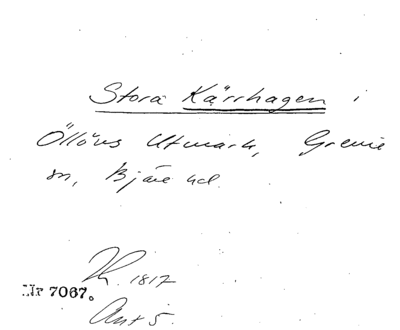 Stora Kärrhagen i
Öllövs Utmark, Grevie
sn, Bjäre hd.
1817
Nr 7067.
Ant 5.